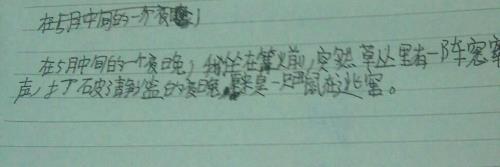 在5月中间的一个夜晚，
在5月中间的一个夜晚，我坐在篝火前，突然草丛里有一阵窸窣
声，打破了静谧的夜晚，原来是一只鼠在逃窜。